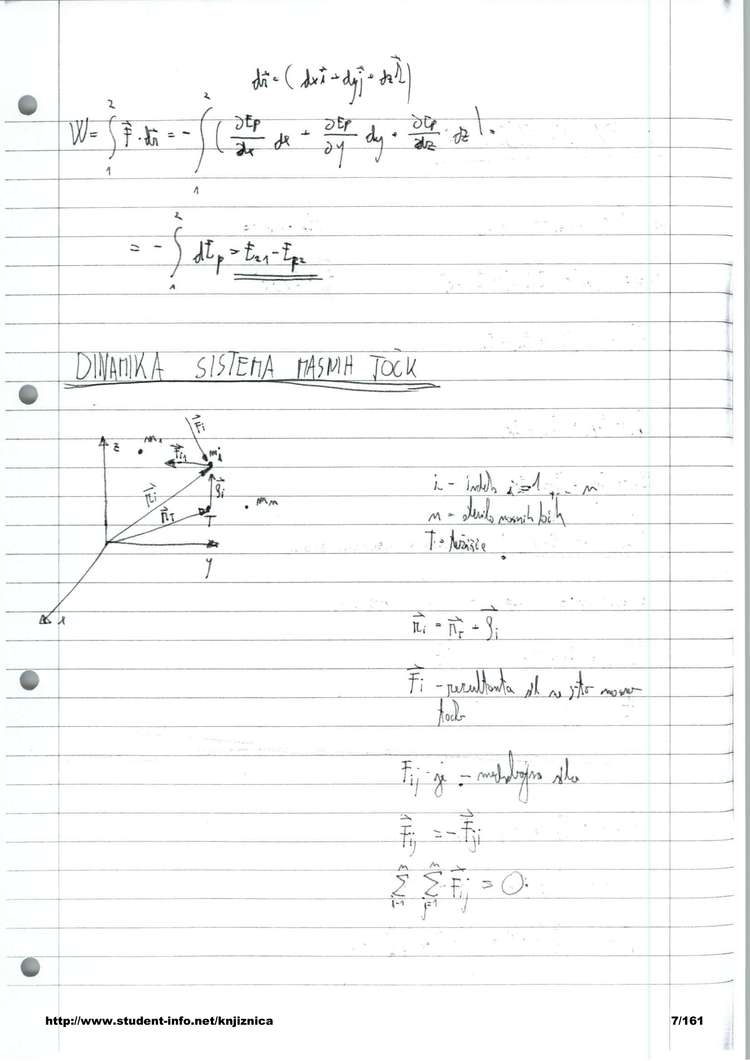 d\vec{r} = (dx\vec{i} + dy\vec{j} + dz\vec{k})
W = \int_1^2 \vec{F} \cdot d\vec{r} = -\int_1^2 (\frac{∂Ep}{∂x} dx + \frac{∂Ep}{∂y} dy + \frac{∂Ep}{∂z} dz) =
= -\int_1^2 dE_p = E_{p1} - E_{p2}
DINAMIKA SISTEMA MASNIH TOČK
z
\vec{F}_i
m_i
\vec{r}_i
\vec{ρ}_i
\vec{r}_T
T
m_n
y
x
i - indeks i=1, ... n
n - število masnih točk
T - težišče
\vec{r}_i = \vec{r}_T + \vec{ρ}_i
\vec{F}_i - rezultanta sil na i-to masno
točko
F_{ij} je - medsebojna sila
\vec{F}_{ij} = -\vec{F}_{ji}
\sum_{i=1}^{n} \sum_{j=1}^{n} \vec{F}_{ij} = 0
http://www.student-info.net/knjiznica
7/161